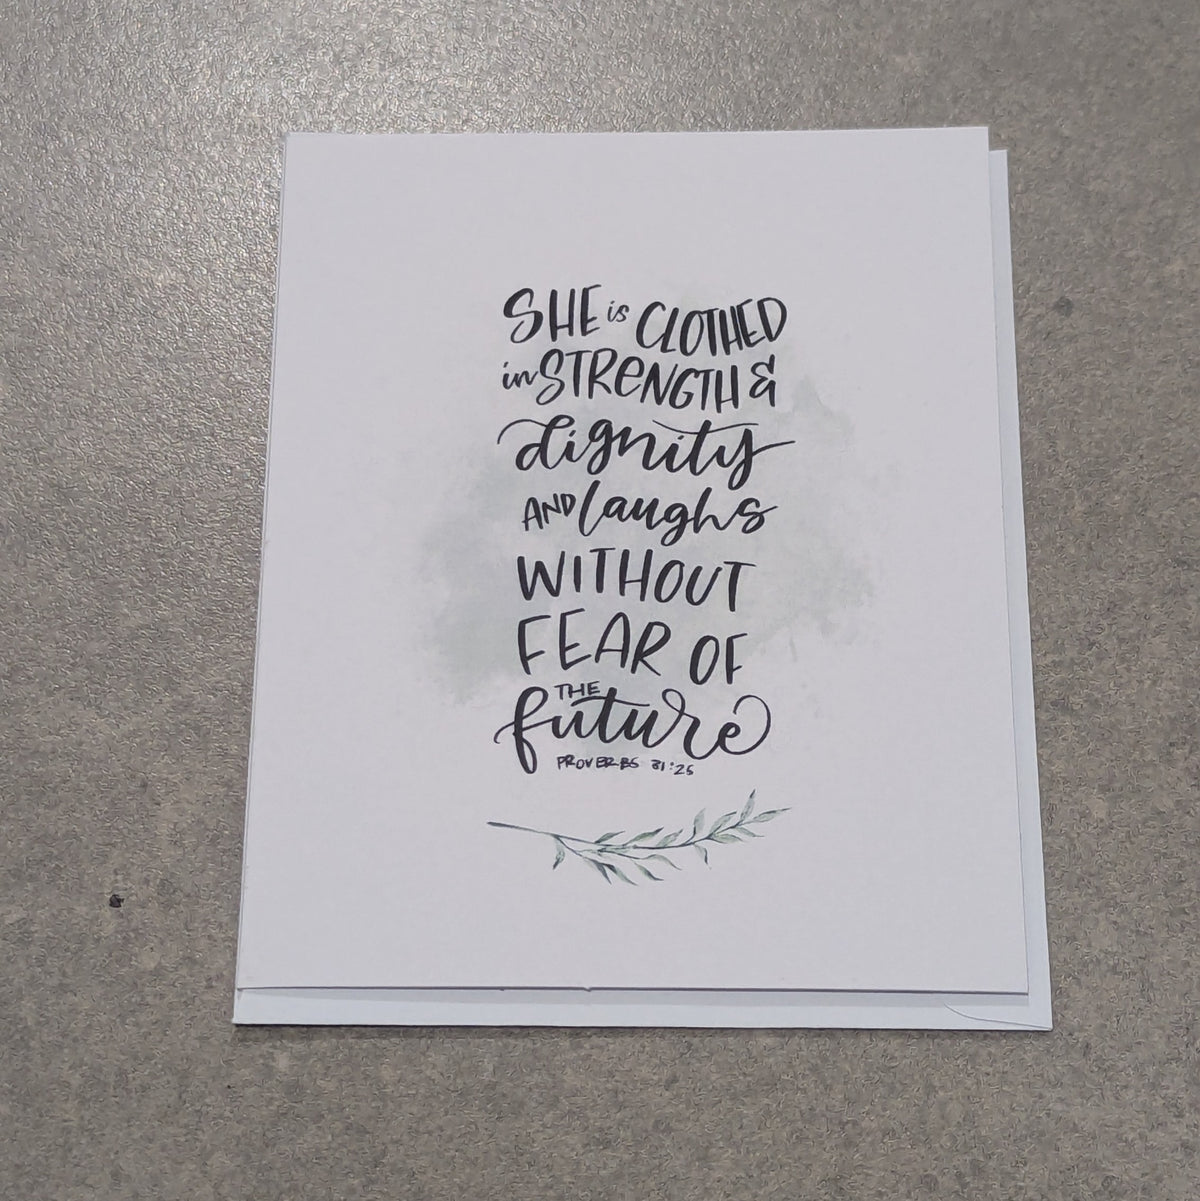 SHE is CLOTHED
in STRENGTH &
dignity
AND laughs
WITHOUT
FEAR OF
THE
future
PROVERBS 31:25